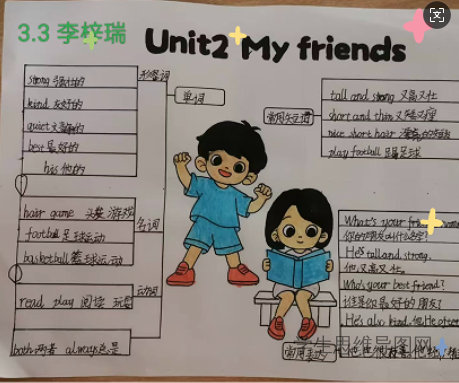 3.3 李梓瑞
Unit2 My friends
strong 强壮的
kind 友好的
quiet 文静的
best 最好的
his 他的
形容词
单词
hair game 头发 游戏
football 足球运动
basketball 篮球运动
名词
read play 阅读 玩耍
动词
both 两者 always 总是
常用短语
tall and strong 又高又壮
short and thin 又矮又瘦
nice short hair 漂亮的短发
play football 踢足球
What's your friend's name?
你的朋友叫什么名字?
He's tall and strong.
他又高又壮。
Who's your best friend?
谁是你最好的朋友
He's also kind. He often
常用表达
学生思维导图网